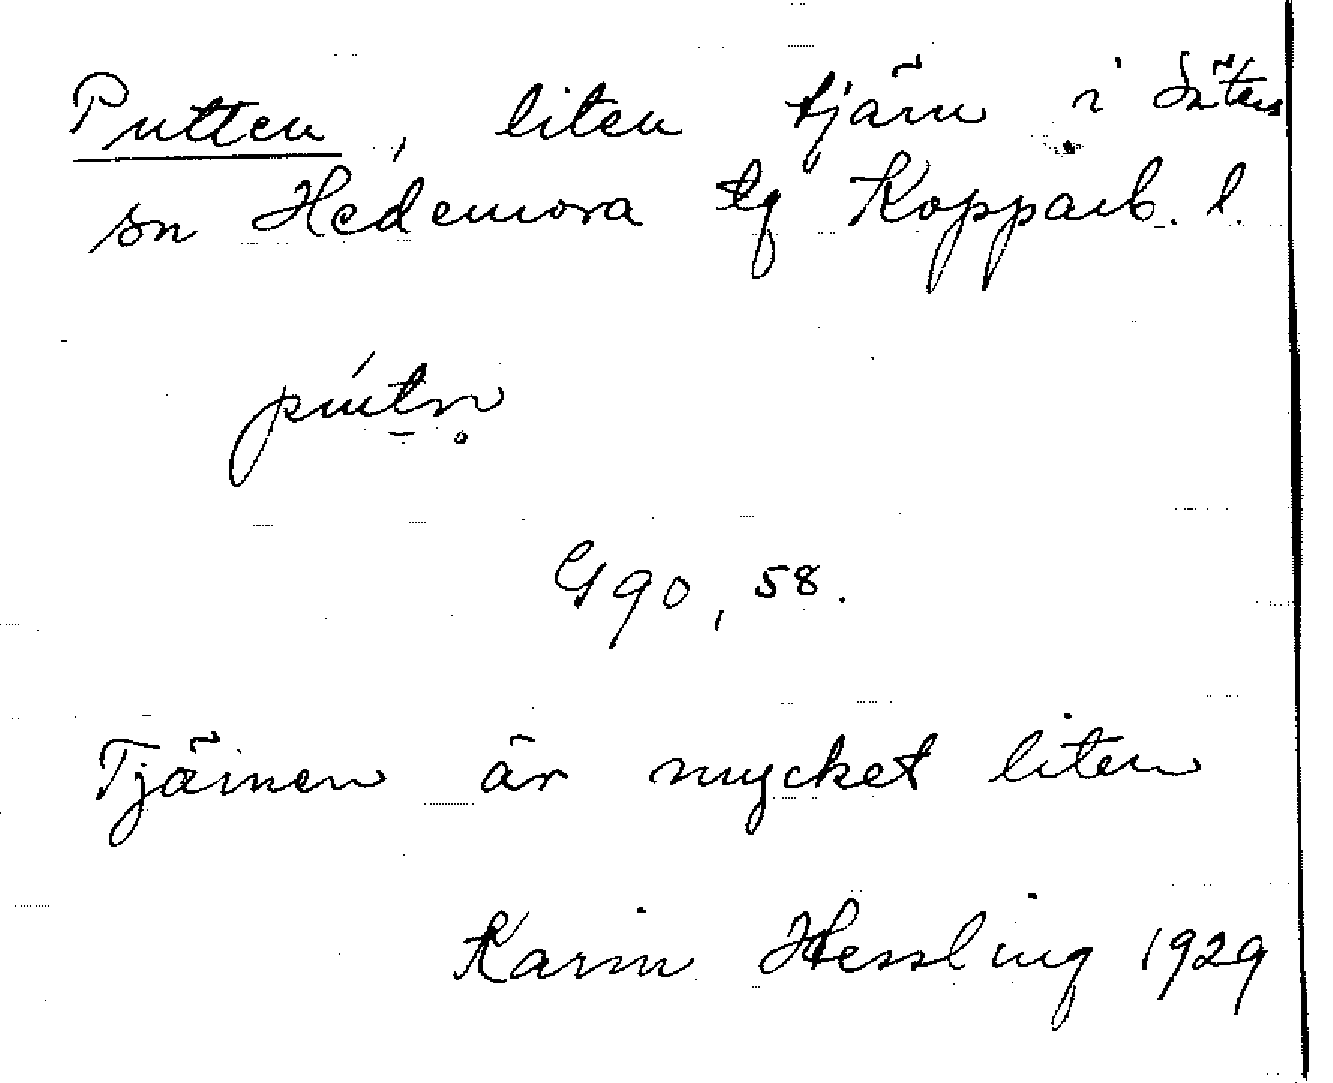 Putten, liten tjärn i Säters
sn Hedemora tg Kopparb. l.
pútn̥
G 90, 58.
Tjärnen är mycket liten
Karin Hessling 1929